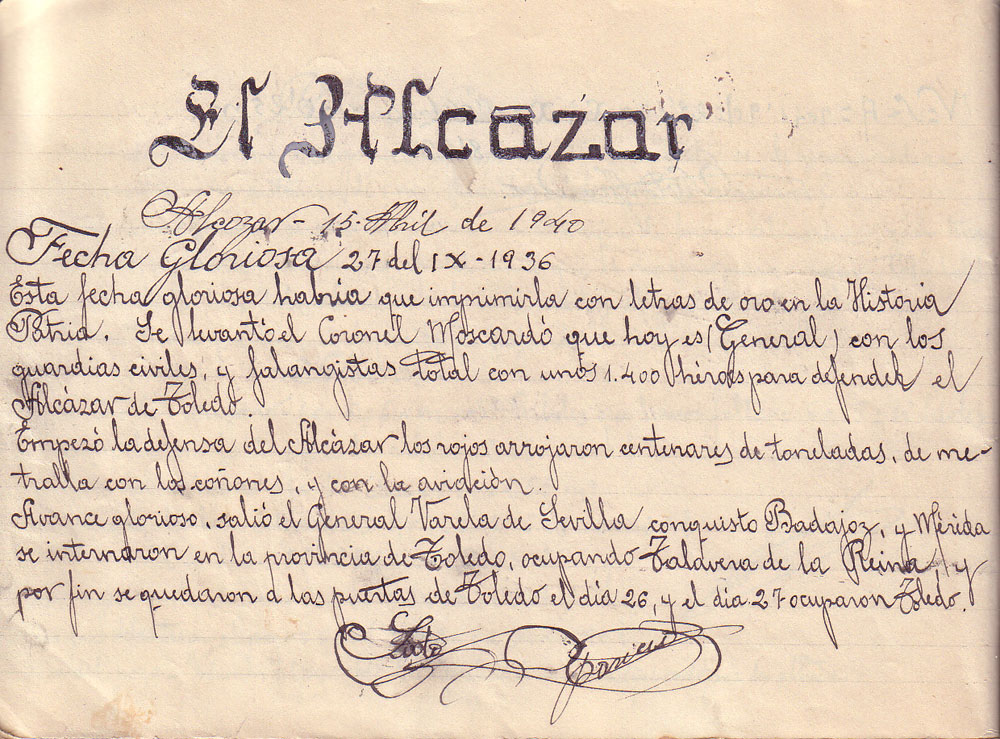 El Alcazar
Alcozar - 15 - Abril de 1940
Fecha Gloriosa 27 del IX - 1936
Esta fecha gloriosa habria que imprimirla con letras de oro en la Historia
Pátria. Se levantó el Coronel Moscardó que hoy es (General) con los
guardias civiles, y falangistas Total con unos 1.400 héroes para defender el
Alcázar de Toledo.
Empezó la defensa del Alcázar los rojos arrojaron centenares de toneladas, de me-
tralla con los cañones, y con la aviación.
Avance glorioso, salió el General Varela de Sevilla conquisto Badajoz, y Mérida
se internaron en la provincia de Toledo, ocupando Talavera de la Reina, y
por fin se quedaron a las puertas de Toledo el día 26, y el dia 27 ocuparon Toledo.